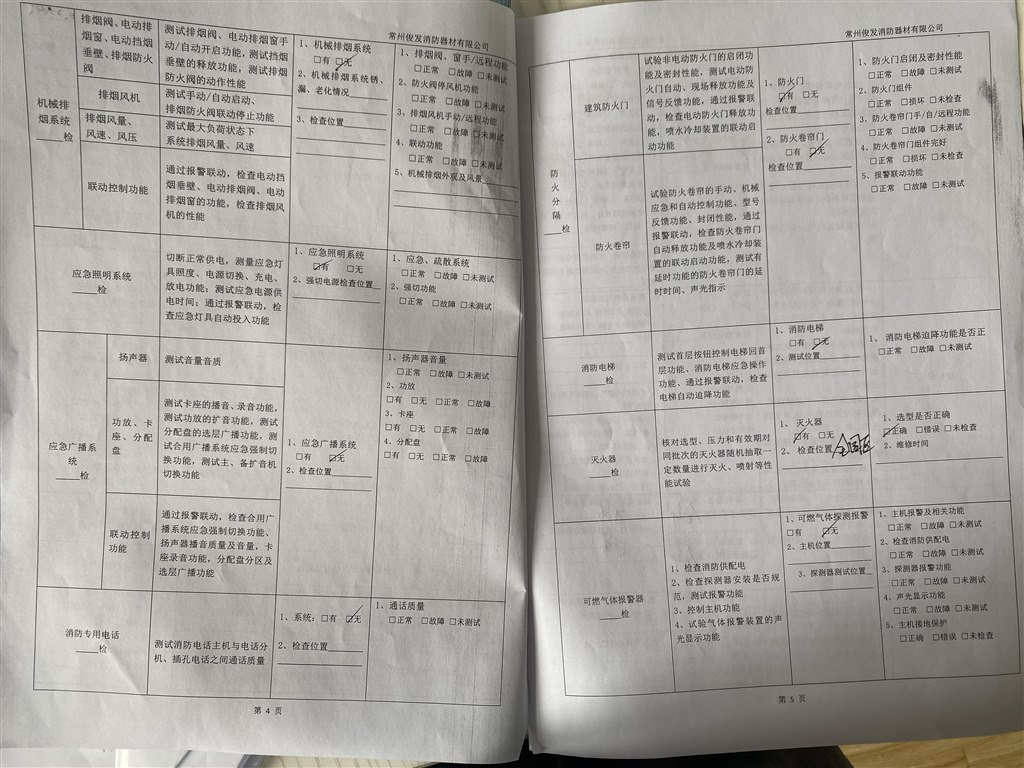 常州俊发消防器材有限公司
机械排
烟系统
____检
排烟阀、电动排
烟窗、电动挡烟
垂壁、排烟防火
阀
测试排烟阀、电动排烟窗手
动/自动开启功能，测试挡烟
垂壁的释放功能，测试排烟
防火阀的动作性能
排烟风机
测试手动/自动启动、
排烟防火阀联动停止功能
排烟风量、
风速、风压
测试最大负荷状态下
系统排烟风量、风速
联动控制功能
通过报警联动，检查电动挡
烟垂壁、电动排烟阀、电动
排烟窗的功能，检查排烟风
机的性能
1、机械排烟系统
□有 ☑无
2、机械排烟系统锈、
漏、老化情况____
3、检查位置____
1、排烟阀、窗手/远程功能
□正常 □故障 □未测试
2、防火阀停风机功能
□正常 □故障 □未测试
3、排烟风机手动/远程功能
□正常 □故障 □未测试
4、联动功能
□正常 □故障 □未测试
5、机械排烟外观及风景____
应急照明系统
____检
切断正常供电，测量应急灯
具照度、电源切换、充电、
放电功能；测试应急电源供
电时间；通过报警联动，检
查应急灯具自动投入功能
1、应急照明系统
☑有 □无
2、强切电源检查位置__
1、应急、疏散系统
□正常 □故障 □未测试
2、强切功能
□正常 □故障 □未测试
应急广播系
统
____检
扬声器
测试音量音质
功放、卡
座、分配
盘
测试卡座的播音、录音功能，
测试功放的扩音功能，测试
分配盘的选层广播功能，测
试合用广播系统应急强制切
换功能，测试主、备扩音机
切换功能
联动控制
功能
通过报警联动，检查合用广
播系统应急强制切换功能、
扬声器播音质量及音量，卡
座录音功能，分配盘分区及
选层广播功能
1、应急广播系统
□有 ☑无
2、检查位置____
1、扬声器音量
□正常 □故障 □未测试
2、功放
□有 □无 □正常 □故障
3、卡座
□有 □无 □正常 □故障
4、分配盘
□有 □无 □正常 □故障
消防专用电话
____检
测试消防电话主机与电话分
机、插孔电话之间通话质量
1、系统：□有 ☑无
2、检查位置____
1、通话质量
□正常 □故障 □未测试
第 4 页
常州俊发消防器材有限公司
防
火
分
隔
____检
建筑防火门
试验非电动防火门的启闭功
能及密封性能，测试电动防
火门自动、现场释放功能及
信号反馈功能，通过报警联
动，检查电动防火门释放功
能，喷水冷却装置的联动启
动功能
防火卷帘
试验防火卷帘的手动、机械
应急和自动控制功能、型号
反馈功能、封闭性能，通过
报警联动，检查防火卷帘门
自动释放功能及喷水冷却装
置的联动启动功能，测试有
延时功能的防火卷帘门的延
时时间、声光指示
1、防火门
☑有 □无
检查位置____
2、防火卷帘门
□有 ☑无
检查位置____
1、防火门启闭及密封性能
□正常 □故障 □未测试
2、防火门组件
□正常 □损坏 □未检查
3、防火卷帘门手/自/远程功能
□正常 □故障 □未测试
4、防火卷帘门组件完好
□正常 □损坏 □未检查
5、报警联动功能
□正常 □故障 □未测试
消防电梯
____检
测试首层按钮控制电梯回首
层功能、消防电梯应急操作
功能、通过报警联动，检查
电梯自动迫降功能
1、消防电梯
□有 ☑无
2、测试位置____
1、 消防电梯迫降功能是否正
□正常 □故障 □未测试
灭火器
____检
核对选型、压力和有效期对
同批次的灭火器随机抽取一
定数量进行灭火、喷射等性
能试验
1、 灭火器
☑有 □无
2、 检查位置
1、选型是否正确
☑正确 □错误 □未检查
2、维修时间
可燃气体报警器
____检
1、检查消防供配电
2、检查探测器安装是否规
范，测试报警功能
3、控制主机功能
4、试验气体报警装置的声
光显示功能
1、可燃气体探测报警
□有 ☑无
2、主机位置____
3、探测器测试位置__
1、主机报警及相关功能
□正常 □故障 □未测试
2、检查消防供配电
□正常 □故障 □未测试
3、探测器报警功能
□正常 □故障 □未测试
4、声光显示功能
□正常 □故障 □未测试
5、主机接地保护
□正确 □错误 □未检查
第 5 页